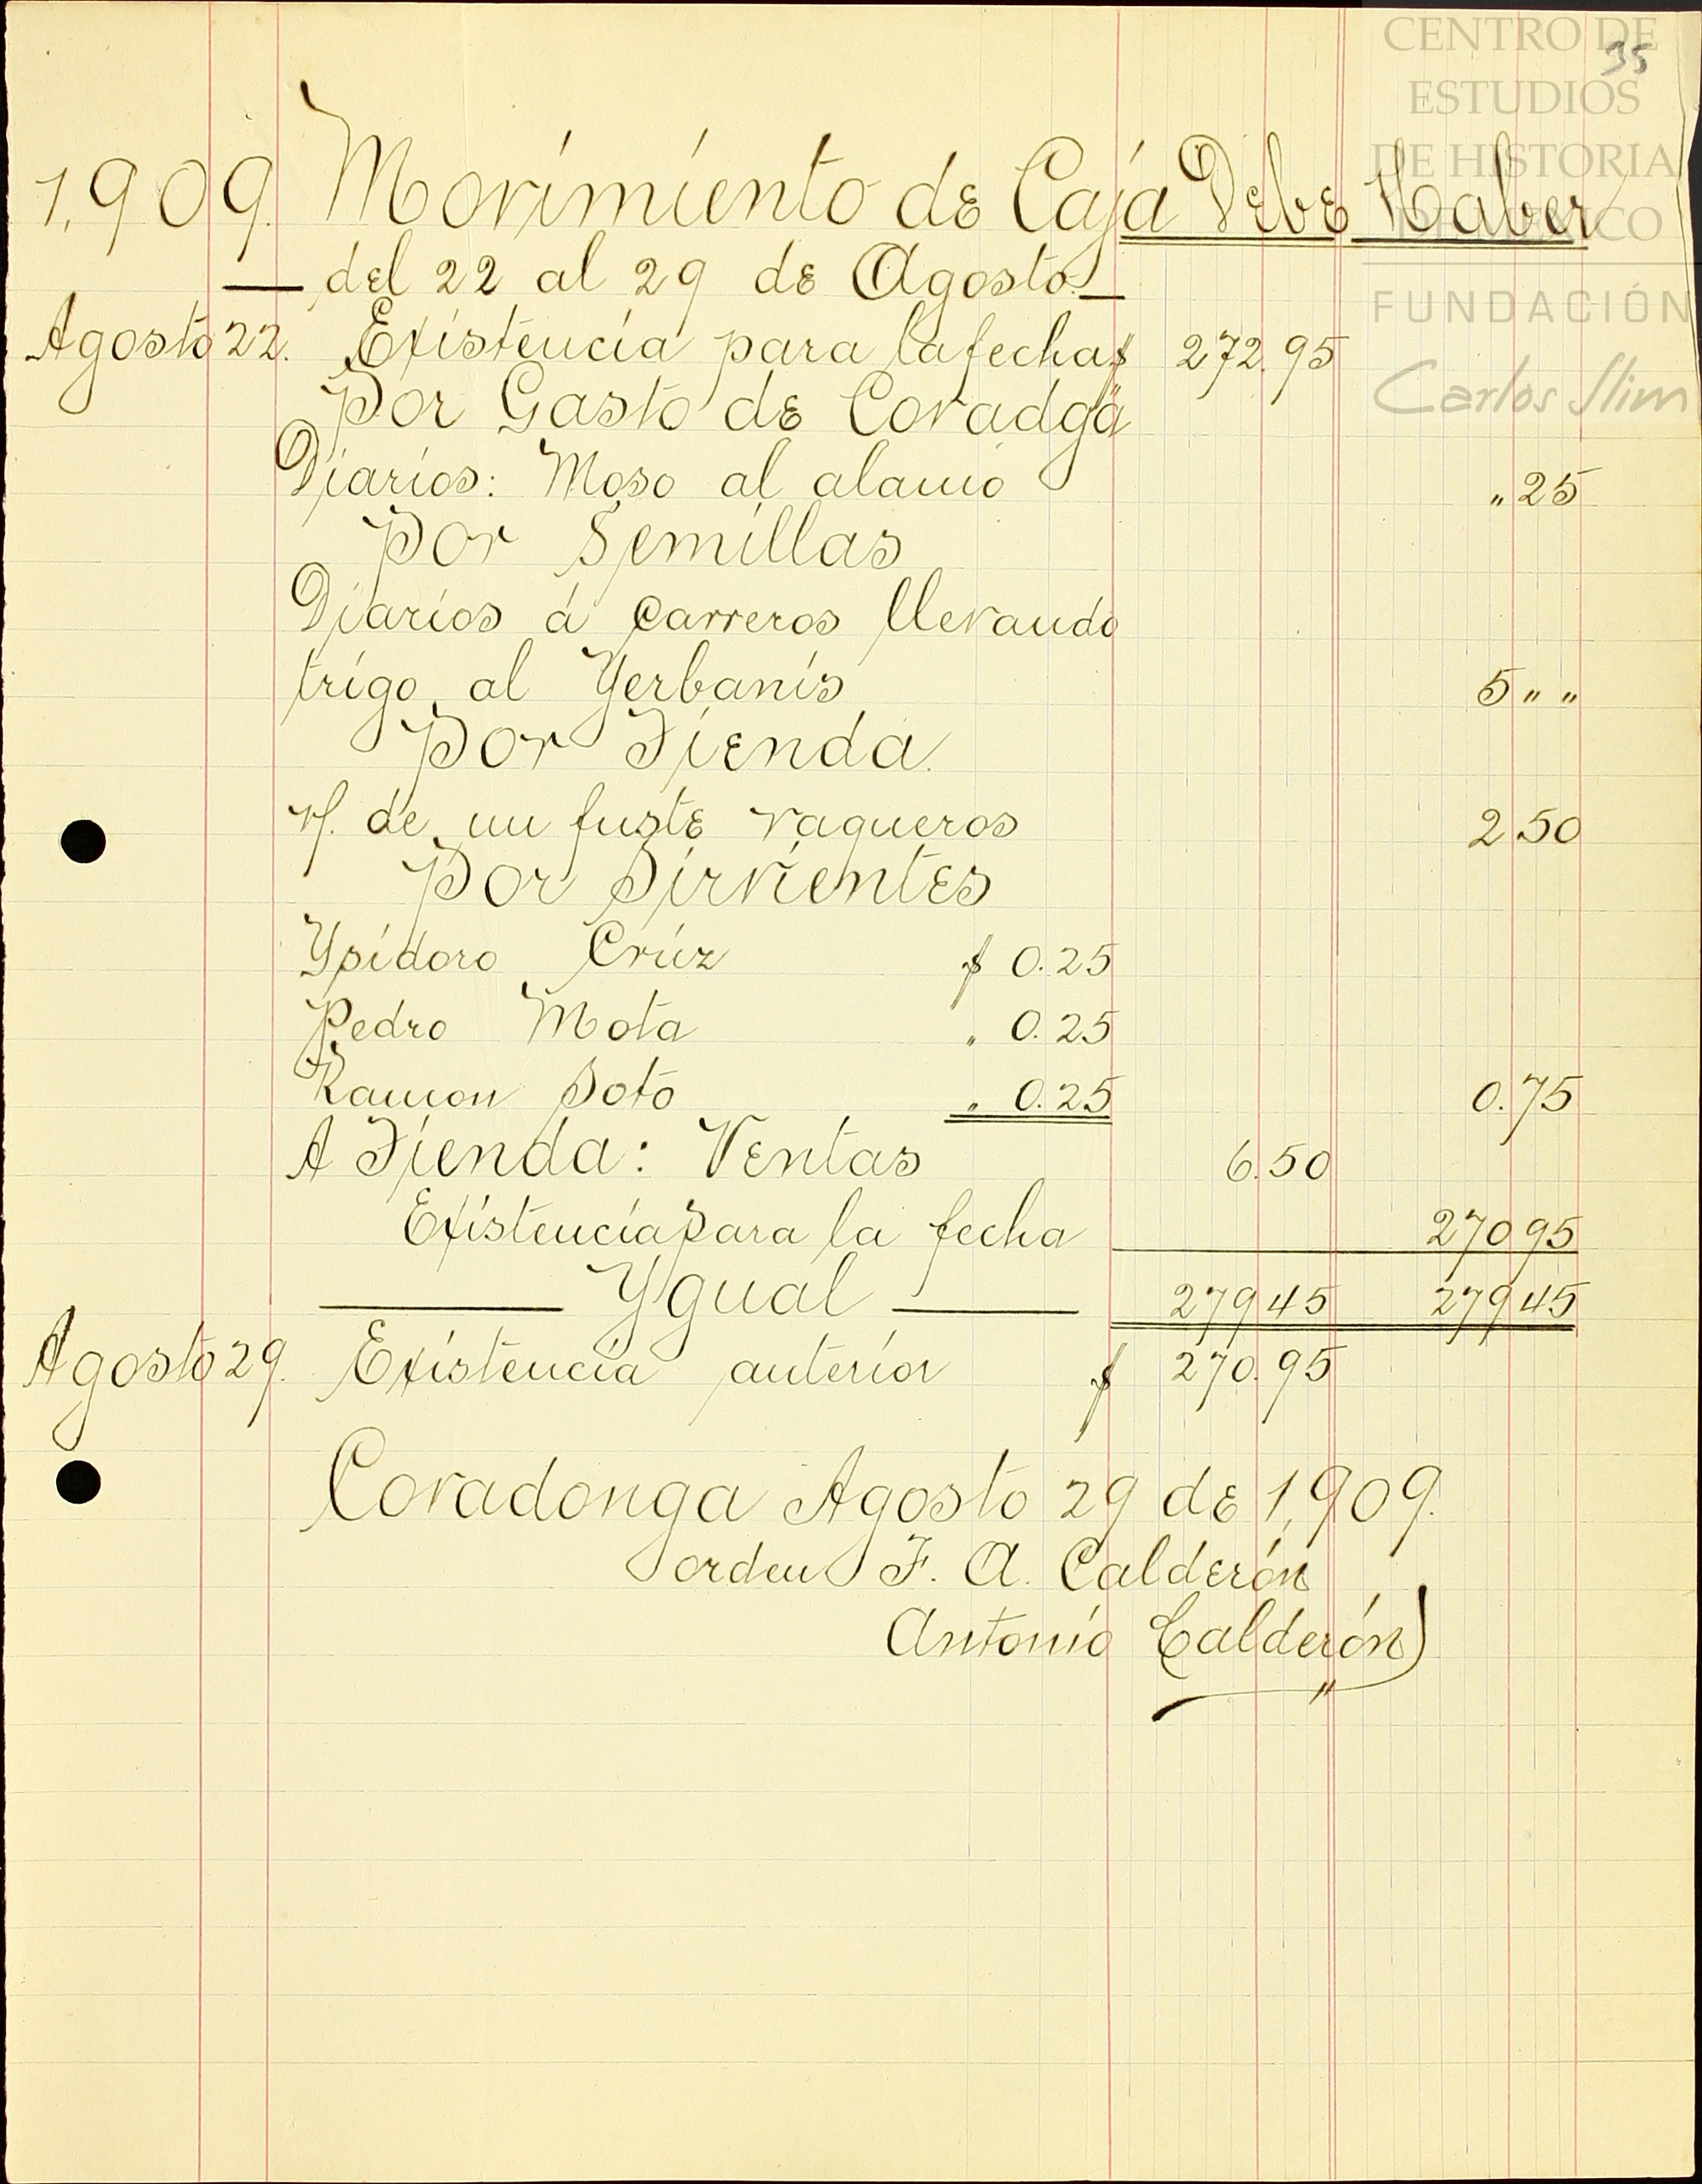 CENTRO DE
ESTUDIOS
DE HISTORIA
DE MÉXICO
FUNDACIÓN
Carlos Slim
35
1,909. Movimiento de Caja Debe Haber
del 22 al 29 de Agosto.
Agosto 22. Existencia para la fecha $ 272.95
Por Gasto de Covadga
Diarios: Moso al alamo " 25
Por Semillas
Diarios á carreros llevando
trigo al Yerbanis 5 " "
Por Tienda.
v/. de un fuste vaqueros 2 50
Por Sirvientes
Ysidoro Crúz $ 0.25
Pedro Mota " 0.25
Ramon Soto " 0.25 0.75
A Tienda: Ventas 6.50
Existencia para la fecha 270 95
Ygual 279 45 279 45
Agosto 29. Existencia anterior $ 270.95
Covadonga Agosto 29 de 1,909.
orden F. A. Calderón
Antonio Calderón